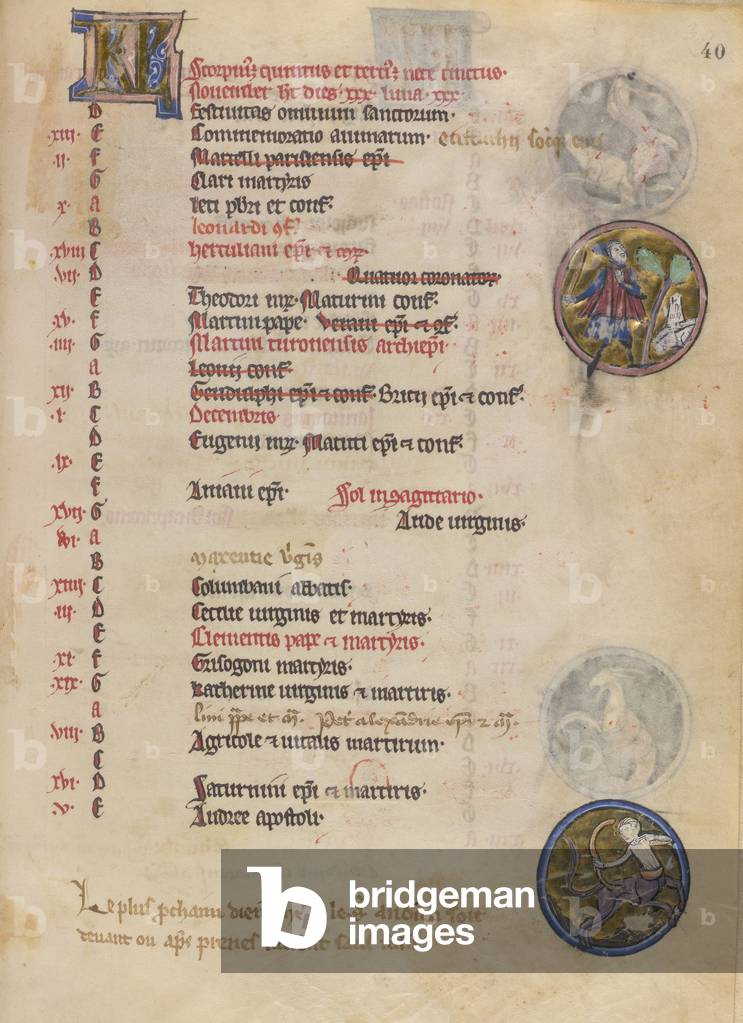 40
KL Scorpius quintus et tertius nece cinctus.
November ht dies .xxx. luna .xxx.
D Festivitas omnium sanctorum.
.xiii. E Commemoratio animarum.
.ii. F Marcelli parisiensis epi
G Clari martyris
.x. A leti pbri et conf.
B leonardi
.xviii. C herculiani epi
.vii. D Quatuor coronator
E Theodori mr. Maturini conf.
.xv. F Martini pape. Verani epi
.iiii. G Martini turonensis archiepi
A Leonii conf.
.xii. B Gendulphi epi & conf. Bricii epi & conf.
.i. C Decembris.
D Eugenii mr. Macuti epi & conf.
.ix. E
F Aniani epi. Sol in sagittario.
.xvii. G Aude virginis.
.vi. A
B Maxentie
.xiiii. C Columbani abbatis.
.iii. D Cecilie virginis et martyris.
E Clementis pape & martyris.
.xi. F Grisogoni martyris.
.xix. G Katherine virginis & martiris.
A lini
.viii. B Agricole & vitalis martirum.
C
.xvi. D Saturnini epi & martiris.
.v. E Andree apostoli.
Le plus
devant ou
b bridgeman images